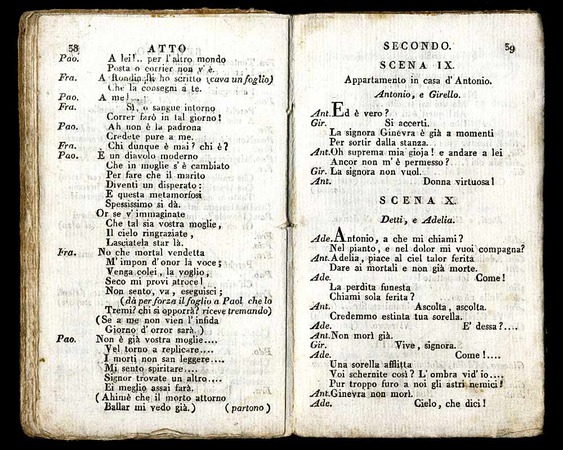 38 ATTO
Pao. A lei!.. per l'altro mondo
Posta o corrier non v'è.
Fra. A Rondinelli ho scritto (cava un foglio)
Che la consegni a te.
Pao. A me!....
Fra. Sì, o sangue intorno
Correr farò in tal giorno!
Pao. Ah non è la padrona
Credete pure a me.
Fra. Chi dunque è mai? chi è?
Pao. È un diavolo moderno
Che in moglie s'è cambiato
Per fare che il marito
Diventi un disperato:
E questa metamorfosi
Spessissimo si dà.
Or se v'immaginate
Che tal sia vostra moglie,
Il cielo ringraziate,
Lasciatela star là.
Fra. No che mortal vendetta
M'impon d'onor la voce;
Venga colei, la voglio,
Seco mi provi atroce!
Non sento, va, eseguisci;
(dà per forza il foglio a Paol. che lo
Tremi? chi s'opporrà? riceve tremando)
(Se a me non vien l'infida
Giorno d'orror sarà.)
Pao. Non è già vostra moglie....
Vel torno a replicare....
I morti non san leggere....
Mi sento spiritare....
Signor trovate un altro....
Ei meglio assai farà.
(Ahimè che il morto attorno
Ballar mi vedo già.) (partono)
SECONDO. 39
SCENA IX.
Appartamento in casa d'Antonio.
Antonio, e Girello.
Ant. Ed è vero?
Gir. Si accerti.
La signora Ginevra è già a momenti
Per sortir dalla stanza..
Ant. Oh suprema mia gioja! e andare a lei
Ancor non m'è permesso?
Gir. La signora non vuol.
Ant. Donna virtuosa!
SCENA X.
Detti, e Adelia.
Ade. Antonio, a che mi chiami?
Nel pianto, e nel dolor mi vuoi compagna?
Ant. Adelia, piace al ciel talor ferita
Dare ai mortali e non già morte.
Ade. Come!
La perduta funesta
Chiami sola ferita?
Ant. Ascolta, ascolta.
Credemmo estinta tua sorella.
Ade. E' dessa?....
Ant. Non morì già.
Gir. Vive, signora.
Ade. Come!....
Una sorella afflitta
Voi schernite così? L'ombra vid'io....
Pur troppo furo a noi gli astri nemici!
Ant. Ginevra non morì.
Ade. Cielo, che dici!